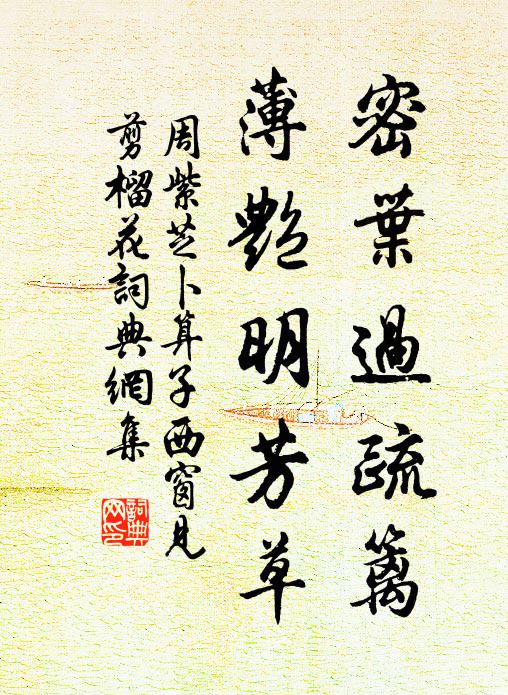 密葉過疏籬
薄艷明芳草
周紫芝卜算子西窗見
剪榴花詞典網集
詞典
网印